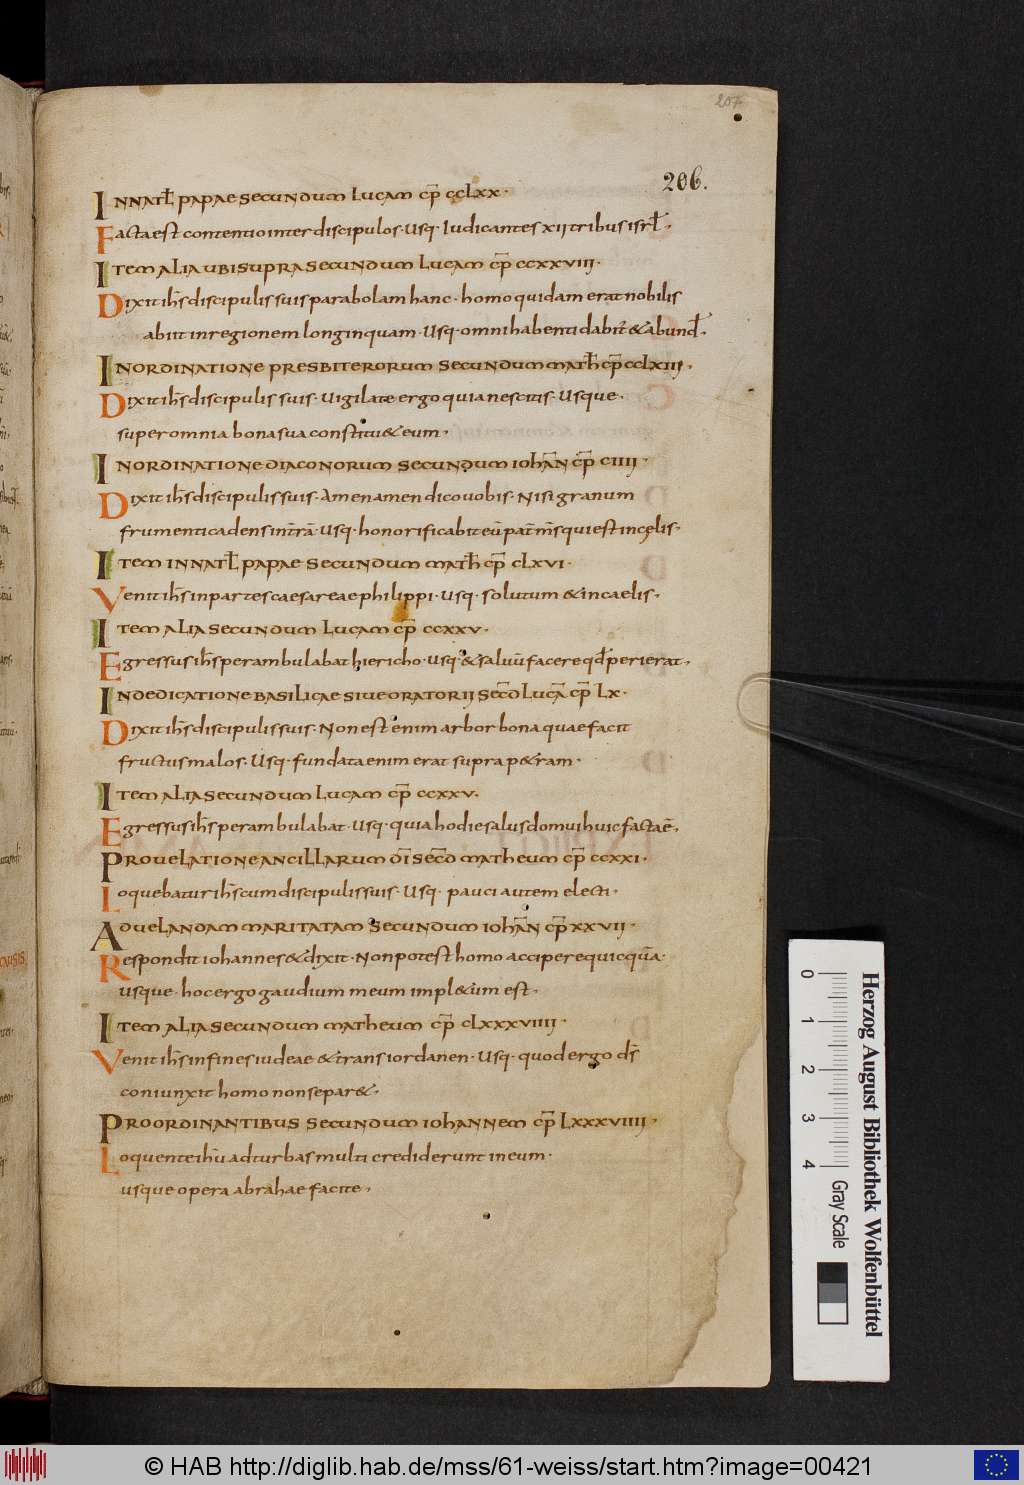 207
206.
INNAT̄L PAPAE SECUNDUM LUCAM CP̄ CCLXX·
Facta est contentio inter discipulos· Usq· Iudicantes xii tribus isrl̄·
ITEM ALIA UBI SUPRA SECUNDUM LUCAM CP̄ CCXXVIII·
Dixit ih̄s discipulis suis parabolam hanc· homo quidam erat nobilis
abiit in regionem longinquam· Usq· omni habenti dabit̄ & abund̄·
IN ORDINATIONE PRESBITERORUM SECUNDUM MATH̄ CP̄ CCLXIII·
Dixit ih̄s discipulis suis· Uigilate ergo quia nescitis· Usque·
super omnia bona sua constitu& eum·
IN ORDINATIONE DIACONORUM SECUNDUM IOHAN̄ CP̄ CIIII·
Dixit ih̄s discipulis suis· Amen amen dico vobis· Nisi granum
frumenti cadens in tr̄ā· Usq· honorificabit eū pat̄ m̄s qui est in cęlis·
ITEM IN NAT̄L PAPAE SECUNDUM MATH̄ CP̄ CLXVI·
Venit ih̄s in partes caesareae philippi· Usq· solutum & in caelis·
ITEM ALIA SECUNDUM LUCAM CP̄ CCXXV·
Egressus ih̄s perambulabat hiericho· Usq· & saluū facere qd̄ perierat·
IN DEDICATIONE BASILICAE SIUE ORATORII SEC̄D LUCĀ CP̄ LX·
Dixit ih̄s discipulis suis· Non est enim arbor bona quae facit
fructus malos· Usq· fundata enim erat supra p&ram·
ITEM ALIA SECUNDUM LUCAM CP̄ CCXXV.
Egressus ih̄s perambulabat· Usq· quia hodie salus domui huic facta ē·
PRO UELATIONE ANCILLARUM DĪ SEC̄D MATHEUM CP̄ CCXXI·
Loquebatur ih̄s cum discipulis suis· Usq· pauci autem electi·
AD UELANDAM MARITATAM SECUNDUM IOHAN̄ CP̄ XXVII·
Respondit iohannes & dixit· Non potest homo accipere quicquā·
usque· hoc ergo gaudium meum impl&um est·
ITEM ALIA SECUNDUM MATHEUM CP̄ CLXXXVIIII·
Venit ih̄s in fines iudeae & trans iordanen· Usq· quod ergo d̄s
coniunxit homo non separ&·
PRO ORDINANTIBUS SECUNDUM IOHANNEM CP̄ LXXXVIIII·
Loquente ih̄u ad turbas multi crediderunt in eum·
usque opera abrahae facite·
0 1 2 3 4 Gray Scale
Herzog August Bibliothek Wolfenbüttel
© HAB http://diglib.hab.de/mss/61-weiss/start.htm?image=00421